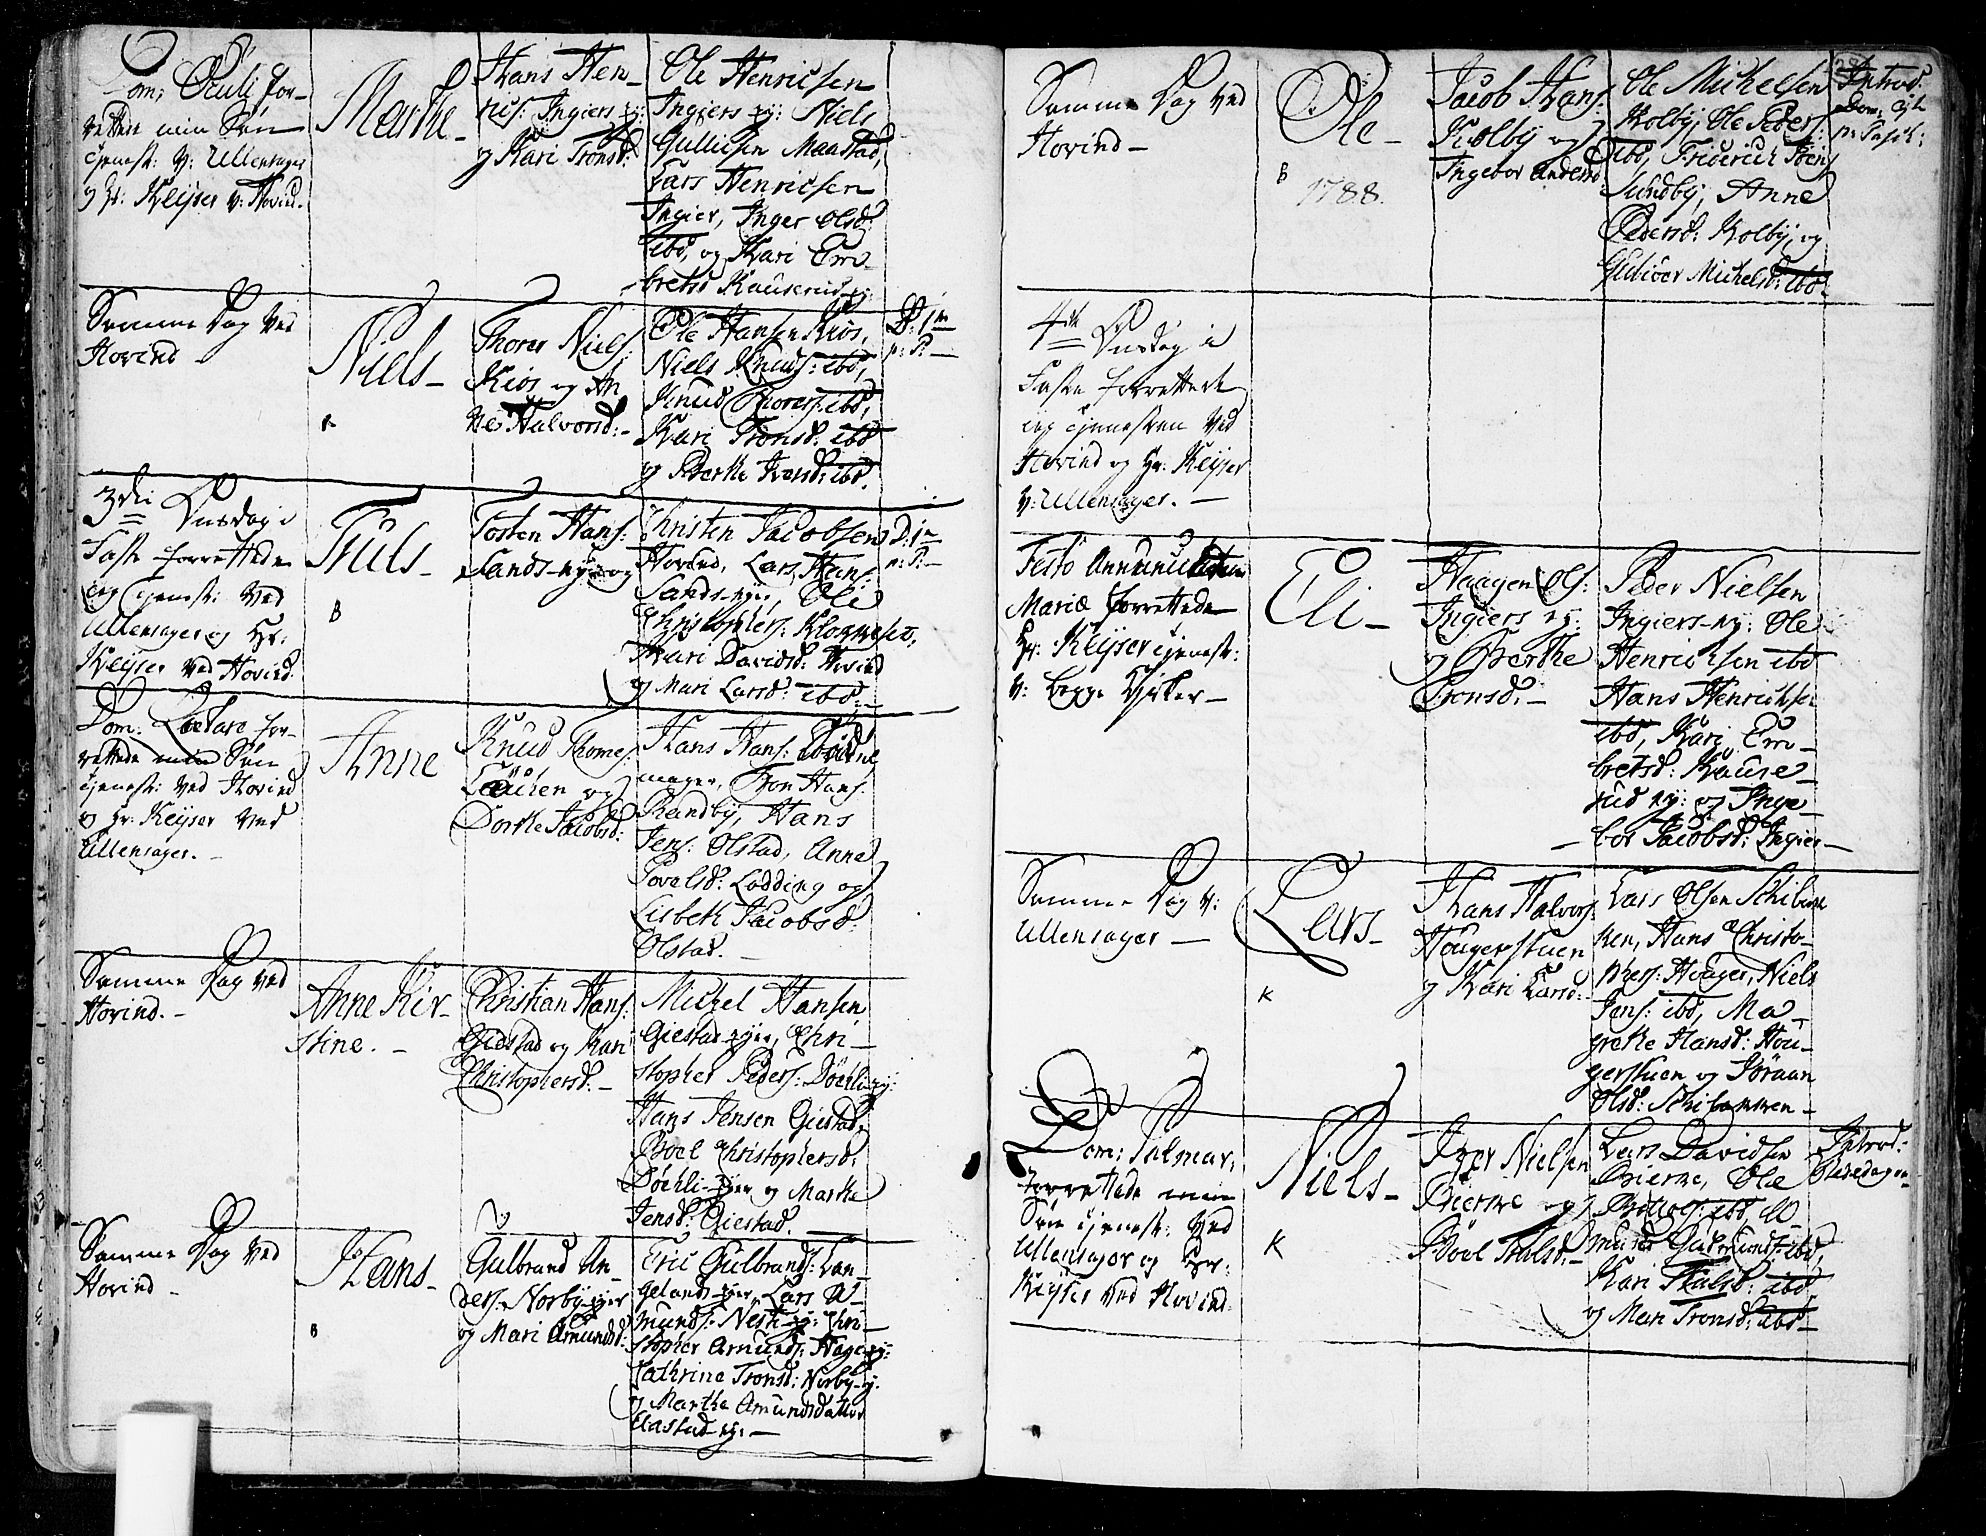 Dom: Oculi for-
rettede min Søn
tjenest: v: Ullensager
og Hr: Keyser v: Hovind.
Marthe
Hans Hen-
rics: Ingiers ej:
og Kari Tronsd:
Ole Henricsen
Ingiers ej: Niels
Gullicsen Maastad,
Lars Henricsen
Ingier, Inger Olsd:
ibd, og Kari Em-
bretsd Kauserud ej:
Samme Dag ved
Hovind
Niels
Thorer Niels:
Kiøs og An
ne Halvorsd:
Ole Hansen Kiøs,
Niels Knuds: ibd,
Knud Thorers: ibd,
Kari Tronsd: ibd
og Berthe Iversd: ibd.
D: 1m
p: P:
3die Onsdag i
Faste forrettede
ieg tjenest: ved
Ullensager og Hr:
Keyser ved Hovind.
Truls
B
Tosten Hans:
Sands-ejer og
Christen Jacobsen
Hovind, Lars Hans:
Sands-ejer, Ole
Christophers: Klokkesæt,
Kari Davidsd: Hovind
og Mari Larsd: ibd:
D: 1m
p: P:
Dom: Lætare for-
rettede min Søn
tjenest: ved Hovind
og Hr: Keyser ved
Ullensager.
Anne
Knud Thomes:
Løuhen og
Dorthe Jacobsd:
Hans Hans:
mager, Tron Hans:
Randby, Hans
Jens: Olstad, Anne
Povelsd: Lodding og
Lisbeth Jacobsd:
Olstad.
Samme Dag ved
Hovind.
Anne Kir-
stine.
Christian Hans:
Gidstad og Kari
Christophersd:
Michel Hansen
Giestad-ejer, Chri-
stopher Peders: Døehli-ej:
Hans Jensen Giestad,
Boel Christophersd:
Døehli-ejer og Marthe
Jensd: Giestad.
Samme Dag ved
Hovind
Hans
B
Gulbrand An-
ders: Norby-ejer
og Mari Amundsd:
Eric Gulbrands: Lan-
gelands-ejer, Lars A-
munds: Nesti-ej: Chri-
stopher Amunds: Hage-ej:
Cathrine Tronsd: Norby-ej:
og Marthe Amundsd
Aastad-ej:
Samme Dag ved
Hovind
Ole
B
1788.
Jacob Hans:
Kolby og
Ingebor Andersd:
Ole Michelsen
Kolby, Ole Peders:
ibd, Friderich Jens:
Sundby, Anne
Pedersd: Kolby, og
Gulioer Michelsd: ibd.
Introd:
Dom:
p: Pasch:
4de Onsdag i
Faste forrettede
ieg tjenesten ved
Hovind og Hr: Keyser
v: Ullensager.
Festo Annunciationis
Mariæ forrettede
Hr: Keyser tjenest:
v: begge Kirker
Eli
Haagen Ols:
Ingiers ej:
og Berthe
Tronsd.
Peder Nielsen
Ingiers-ej: Ole
Henrichsen ibd
Hans Henrichsen
ibd, Kari Em-
bretsd: Kause-
rud ej: og Inge-
bor Jacobsd: Ingier
Samme Dag v:
Ullensager
Lars
K
Hans Halvors:
Hougerstuen
og Kari Larsd:
Lars Olsen Schiba-
ken, Hans Christo-
phers: Houger, Niels
Jens: ibd, Ma-
grethe Hansd: Hou-
gerstuen og Jøraan
Olsd: Schibakken
Dom: Palmar:
forrettede min
Søn tjenest: ved
Ullensager og Hr:
Keyser ved Hovind.
Niels
K
Iver Nielsen
Bierke og
Boel Trulsd:
Lars Davidsen
Bierke, Ole
ibd, A-
mund Gudmunds: ibd,
Kari Trulsd: ibd
og Mari Tronsd: ibd
Introd:
Paaskedagen